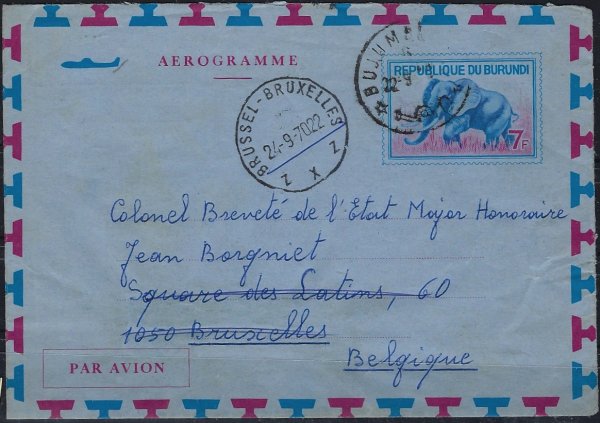 AEROGRAMME
REPUBLIQUE DU BURUNDI
7F
BRUSSEL-BRUXELLES
24-9-70 22
Z X Z
Colonel Breveté de l'Etat Major Honoraire
Jean Borgniet
Square des Latins, 60
1050 Bruxelles
Belgique
PAR AVION